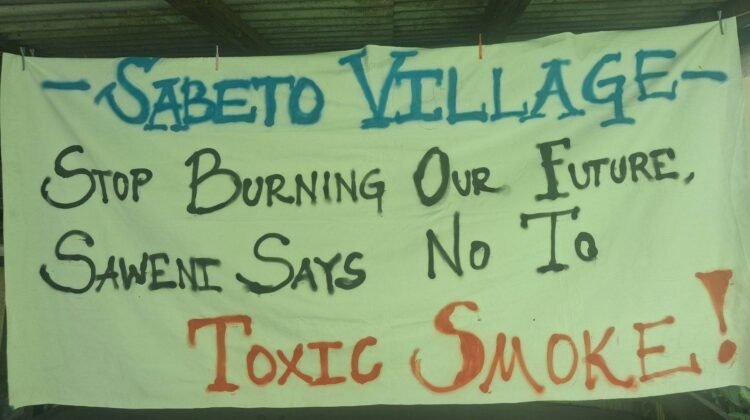 - SABETO VILLAGE -
STOP BURNING OUR FUTURE,
SAWENI SAYS NO TO
TOXIC SMOKE!